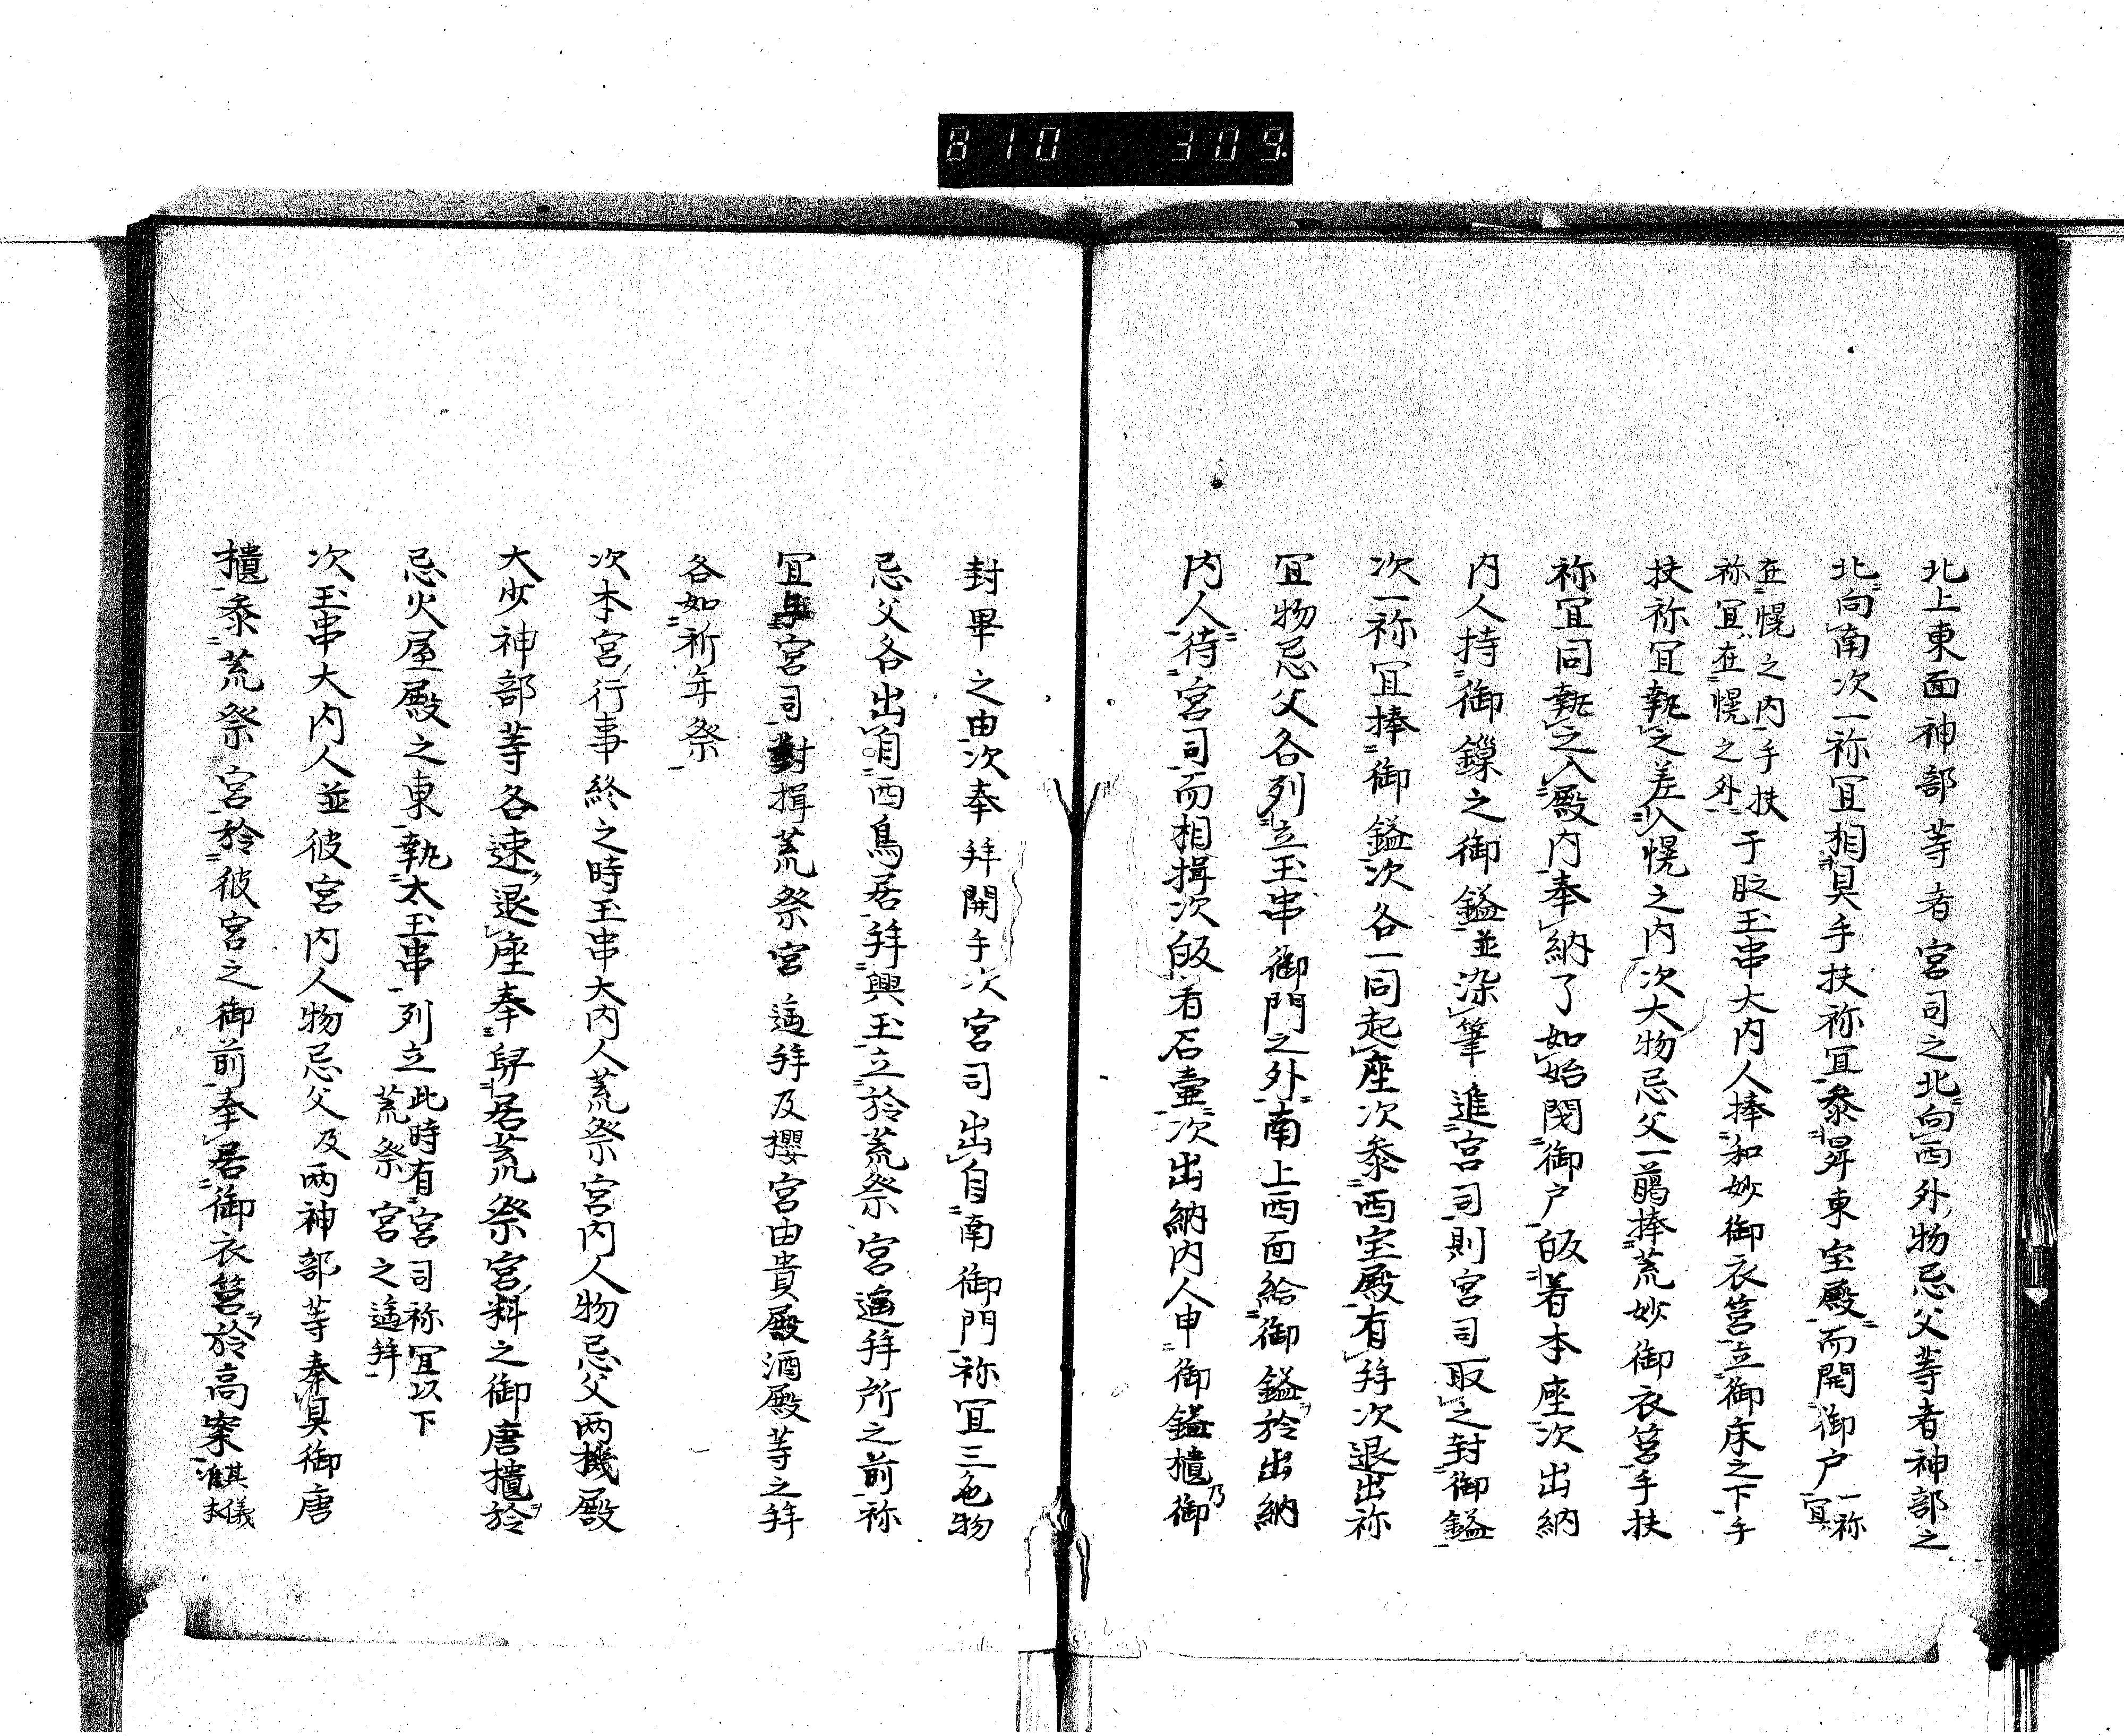 8 10 309.
北上東面神部等者宮司之北向西外物忌父等者神部之
北向南次一祢冝相具手扶祢冝叅昇東宝殿而開御户一祢冝
在幌之内手扶祢冝在幌之外于时玉串大内人捧和妙御衣筥立御床之下手
扶祢冝執之差入幌之内次大物忌父一臈捧荒妙御衣筥手扶
祢冝同執之入殿内奉納了如始閇御户皈着本座次出納
内人持御鏁之御鎰並染筆進宮司則宮司取之封御鎰
次一祢冝捧御鎰次各一同起座次叅西宝殿有拜次退出祢
冝物忌父各列立玉串御門之外南上西面給御鎰於出納
内人待宮司而相揖次皈着石壷次出納内人申御鎰櫃御
封畢之由次奉拜開手次宮司出自南御門祢冝三色物
忌父各出自西鳥居拜與玉立於荒祭宮遥拜所之前祢
冝与宮司對揖荒祭宮遥拜及櫻宮由貴殿酒殿等之拜
各如祈年祭
次本宮行事終之時玉串大内人荒祭宮内人物忌父两機殿
大少神部等各速退座奉舁居荒祭宮料之御唐櫃於
忌火屋殿之東執太玉串列立此時有宮司祢冝以下荒祭宮之遥拜
次玉串大内人並彼宮内人物忌父及两神部等奉具御唐
櫃叅荒祭宮於彼宮之御前奉居御衣筥於高案其儀准本